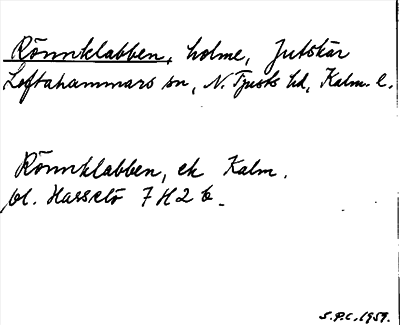 Rönnklabben, holme, Jutskär
Loftahammars sn, N. Tjusts hd, Kalm. l.
Rönnklabben, ek Kalm.
bl. Hasselö 7 H 2 b.
S.P.C. 1959.